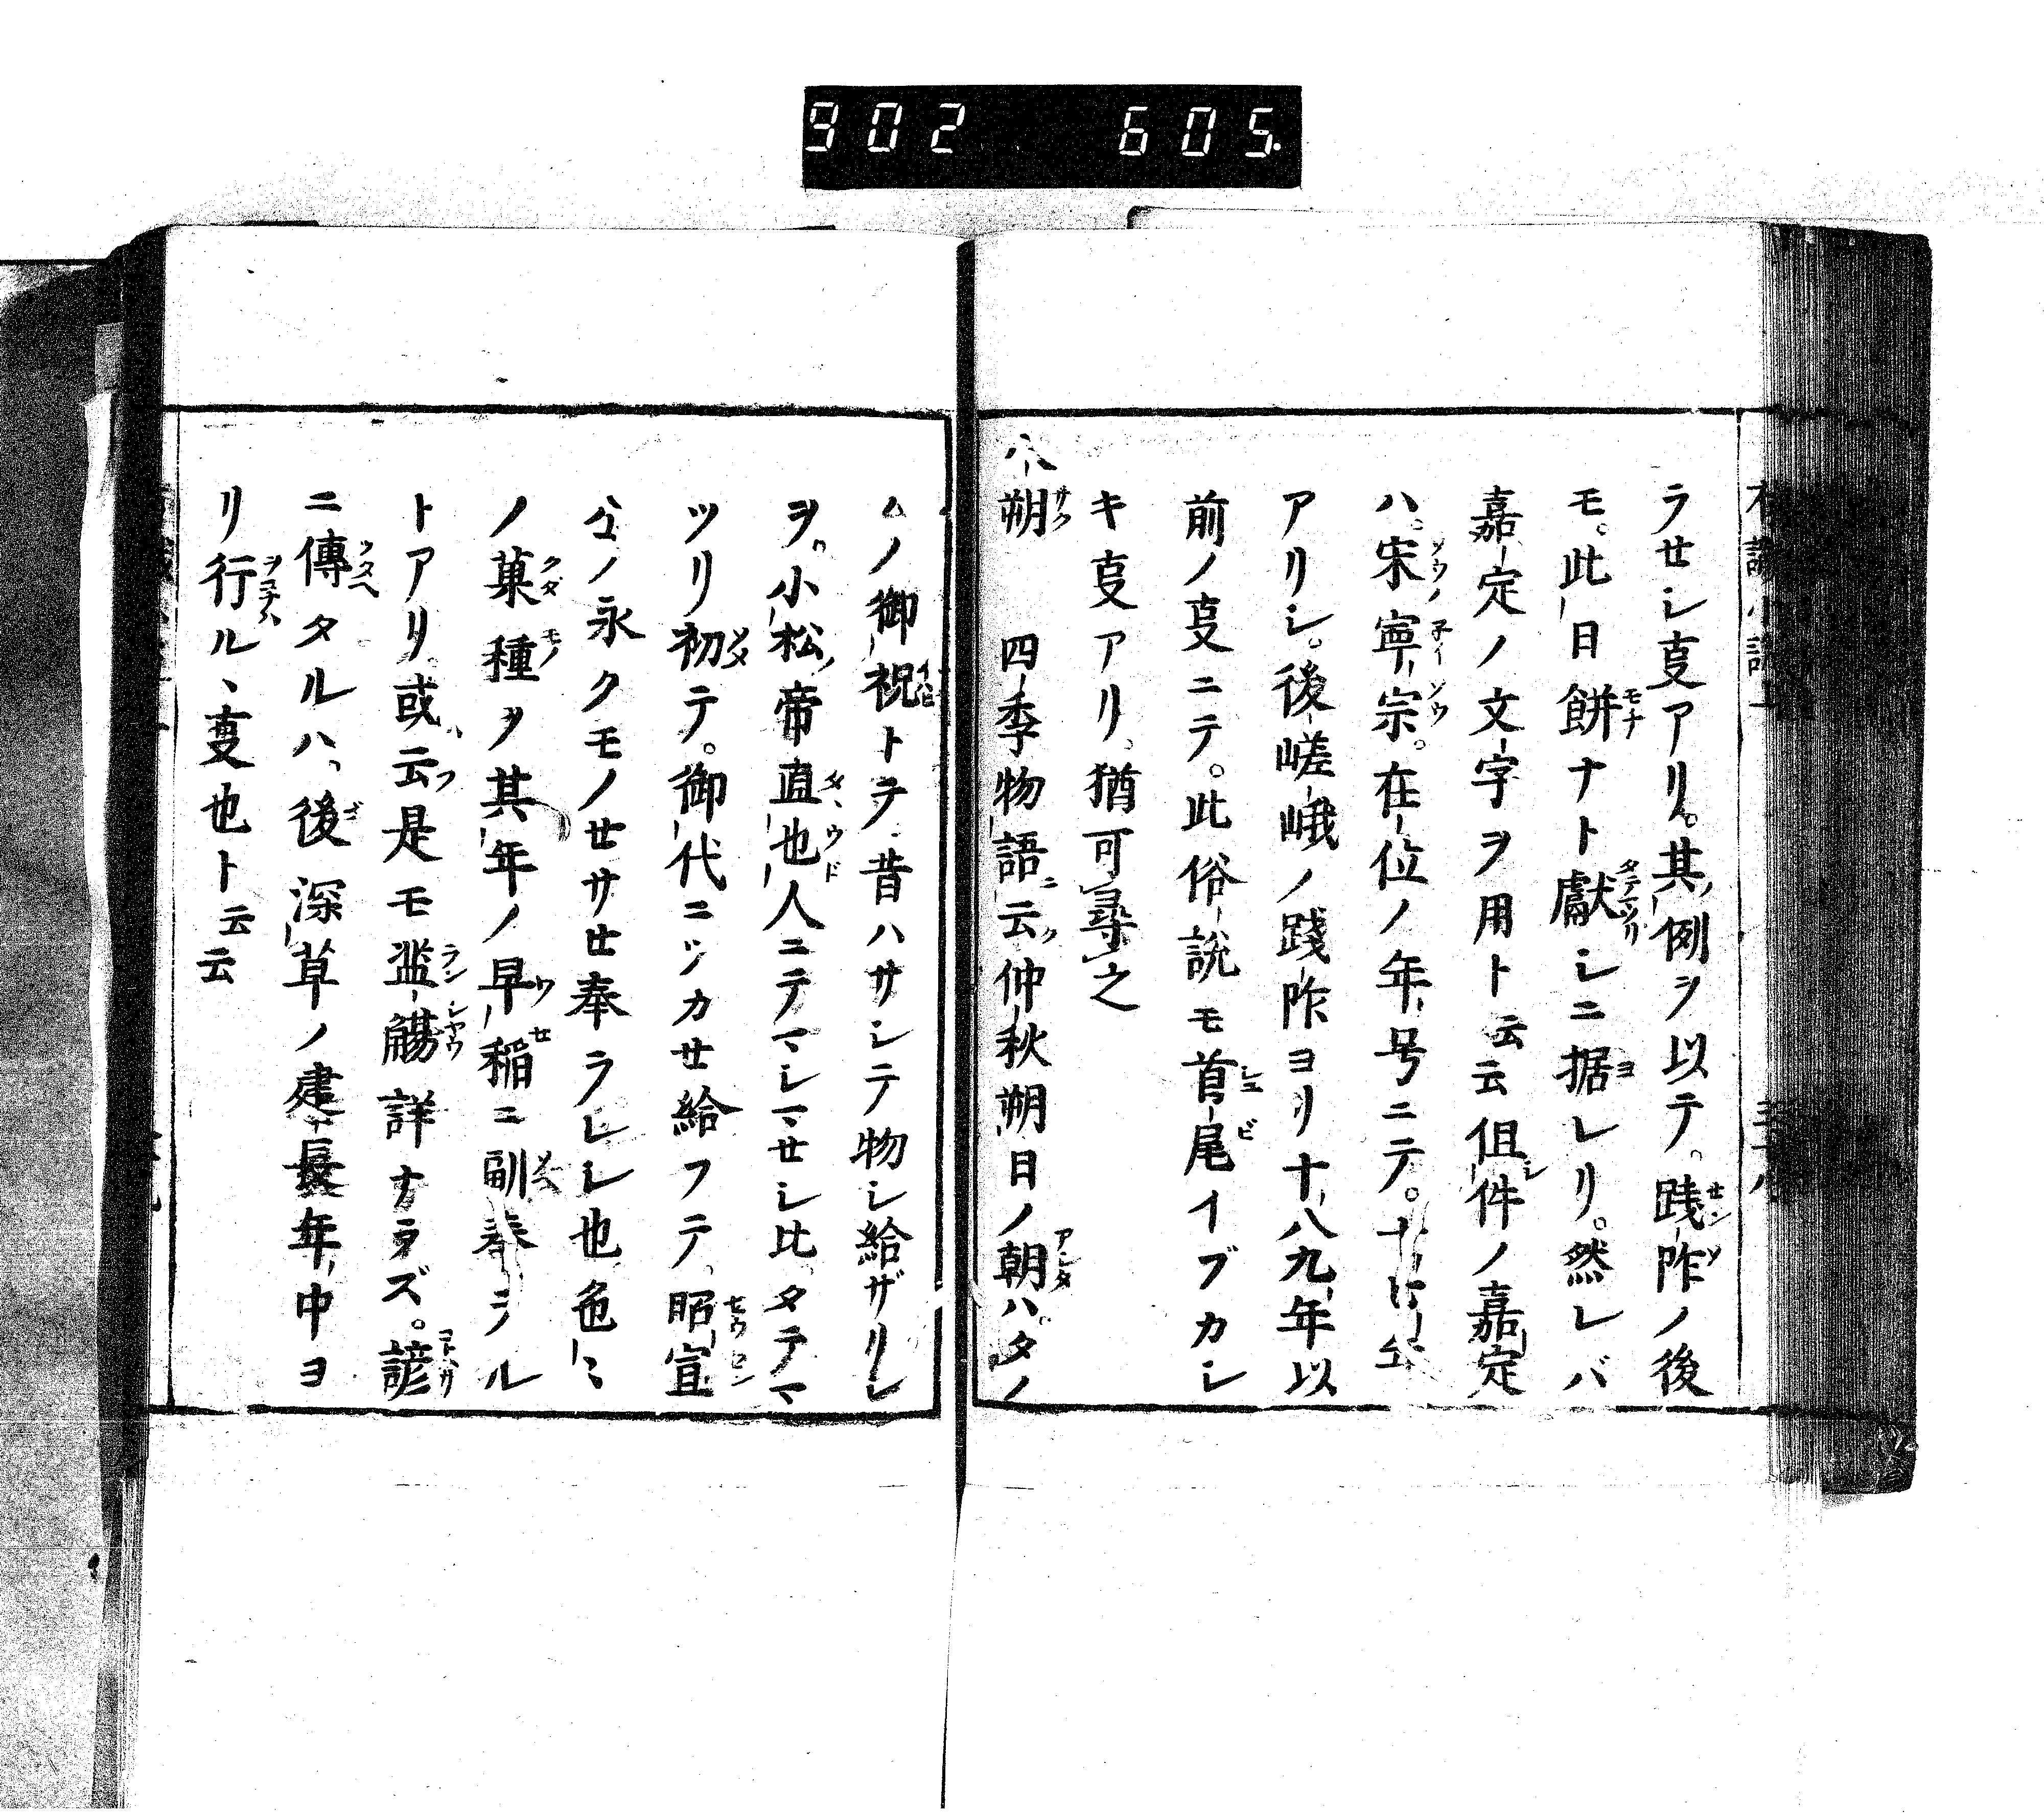 902 605.
ラセシ㕝アリ。其例ヲ以テ。践祚ノ後
モ。此日餅ナト獻シニ据レリ。然レバ
嘉定ノ文字ヲ用ト云云但件ノ嘉定
ハ。宋寧宗。在位ノ年号ニテ。
アリシ。後嵯峨ノ踐祚ヨリ十八九年以
前ノ㕝ニテ。此俗説モ首尾イブカシ
キ㕝アリ。猶可尋之
朔 四季物語云仲秋朔日ノ朝ハ。タノ
ムノ御祝トテ昔ハサシテ物シ給ザリシ
ヲ。小松帝直也人ニテマシマセシ比。タテマ
ツリ初テ。御代ニツカセ給フテ、昭宣
公ノ永クモノセサセ奉ラレシ也色〻
ノ菓種ヲ其年ノ早稲ニ副奉ラル
トアリ。或云是モ濫觴詳ナラズ。諺
ニ傳タルハ、後深草ノ建長年中ヨ
リ行ルヽ㕝也ト云云